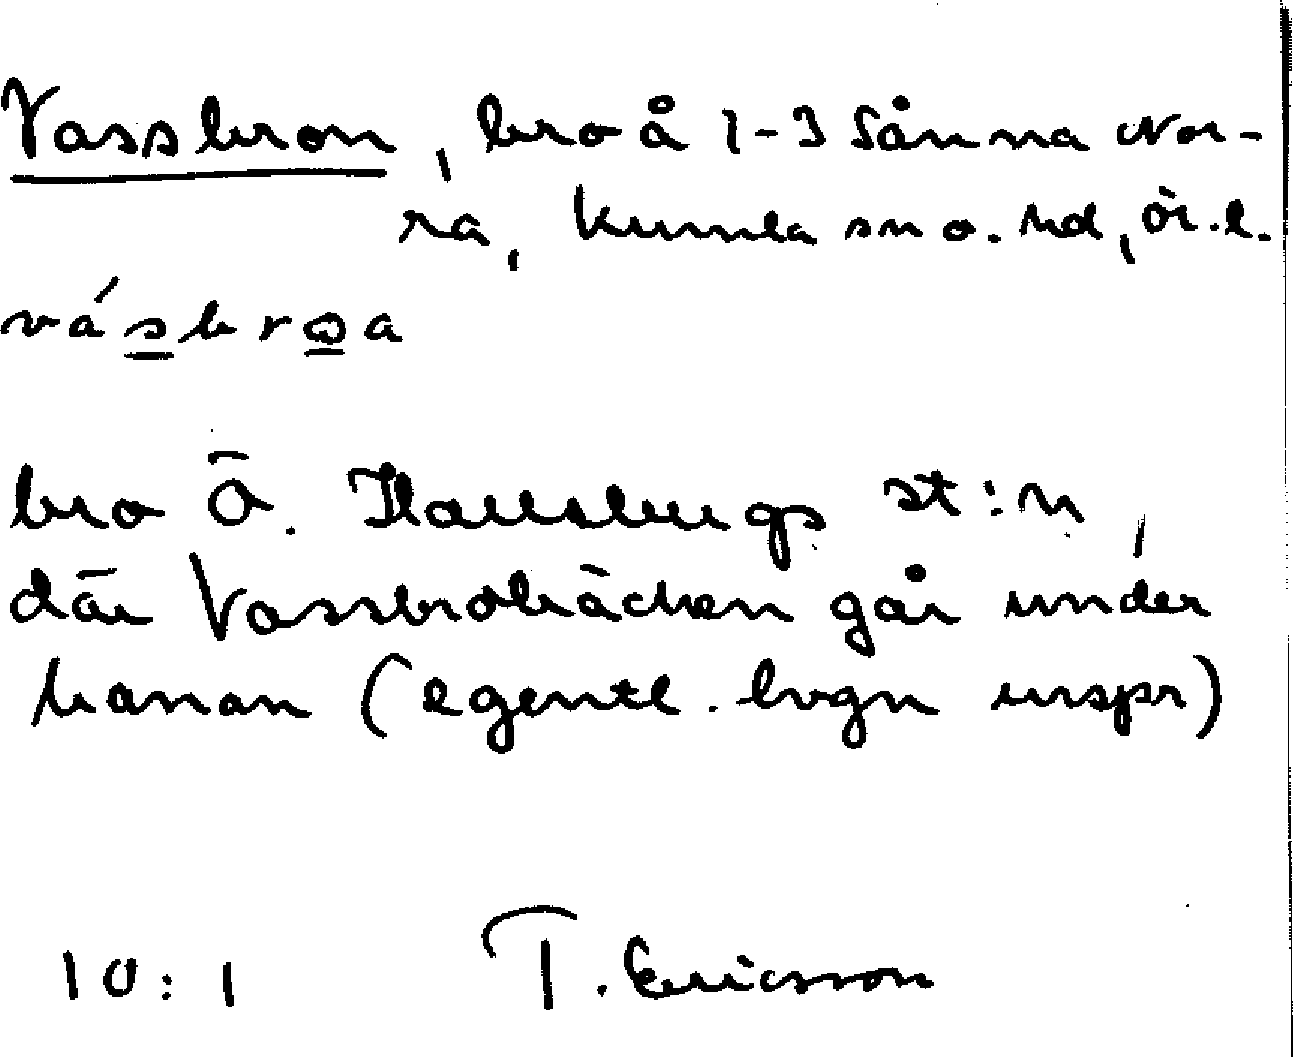 Vassbron, bro å 1-3 Sånna Nor-
ra, Kumla sn o. hd, Ör. l.
vásbrɷa
bro Ö. Hallsbergs st:n,
där Vassbrobäcken går under
banan (egentl. bvgn urspr)
10:1 T. Ericsson